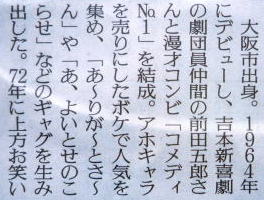 大阪市出身。1964年
にデビューし、吉本新喜劇
の劇団員仲間の前田五郎さ
んと漫才コンビ「コメディ
№1」を結成。アホキャラ
を売りにしたボケで人気を
集め、「あ〜りが〜とさ〜
ん」や「あ、よいとせのこ
らせ」などのギャグを生み
出した。72年に上方お笑い